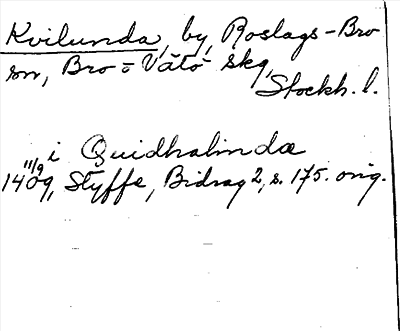 Kvilunda, by, Roslags-Bro
sn, Bro o Vätö skg,
Stockh. l.
i Quidhalindæ
11/9 1409, Styffe, Bidrag 2, s. 175. orig.